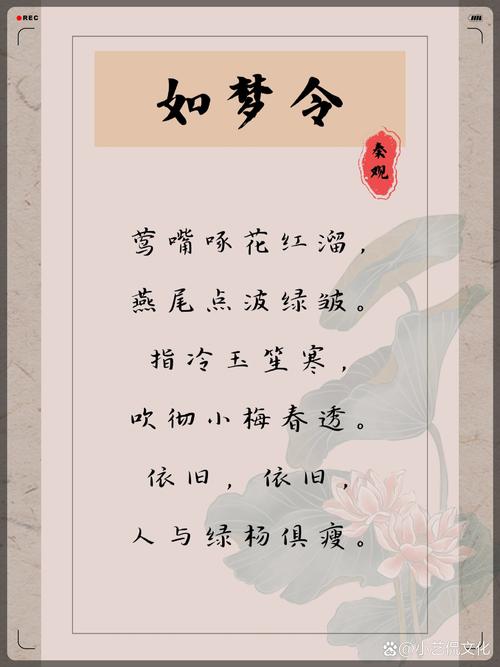 REC
如梦令
秦观
莺嘴啄花红溜，
燕尾点波绿皱。
指冷玉笙寒，
吹彻小梅春透。
依旧，依旧，
人与绿杨俱瘦。
小艺侃文化